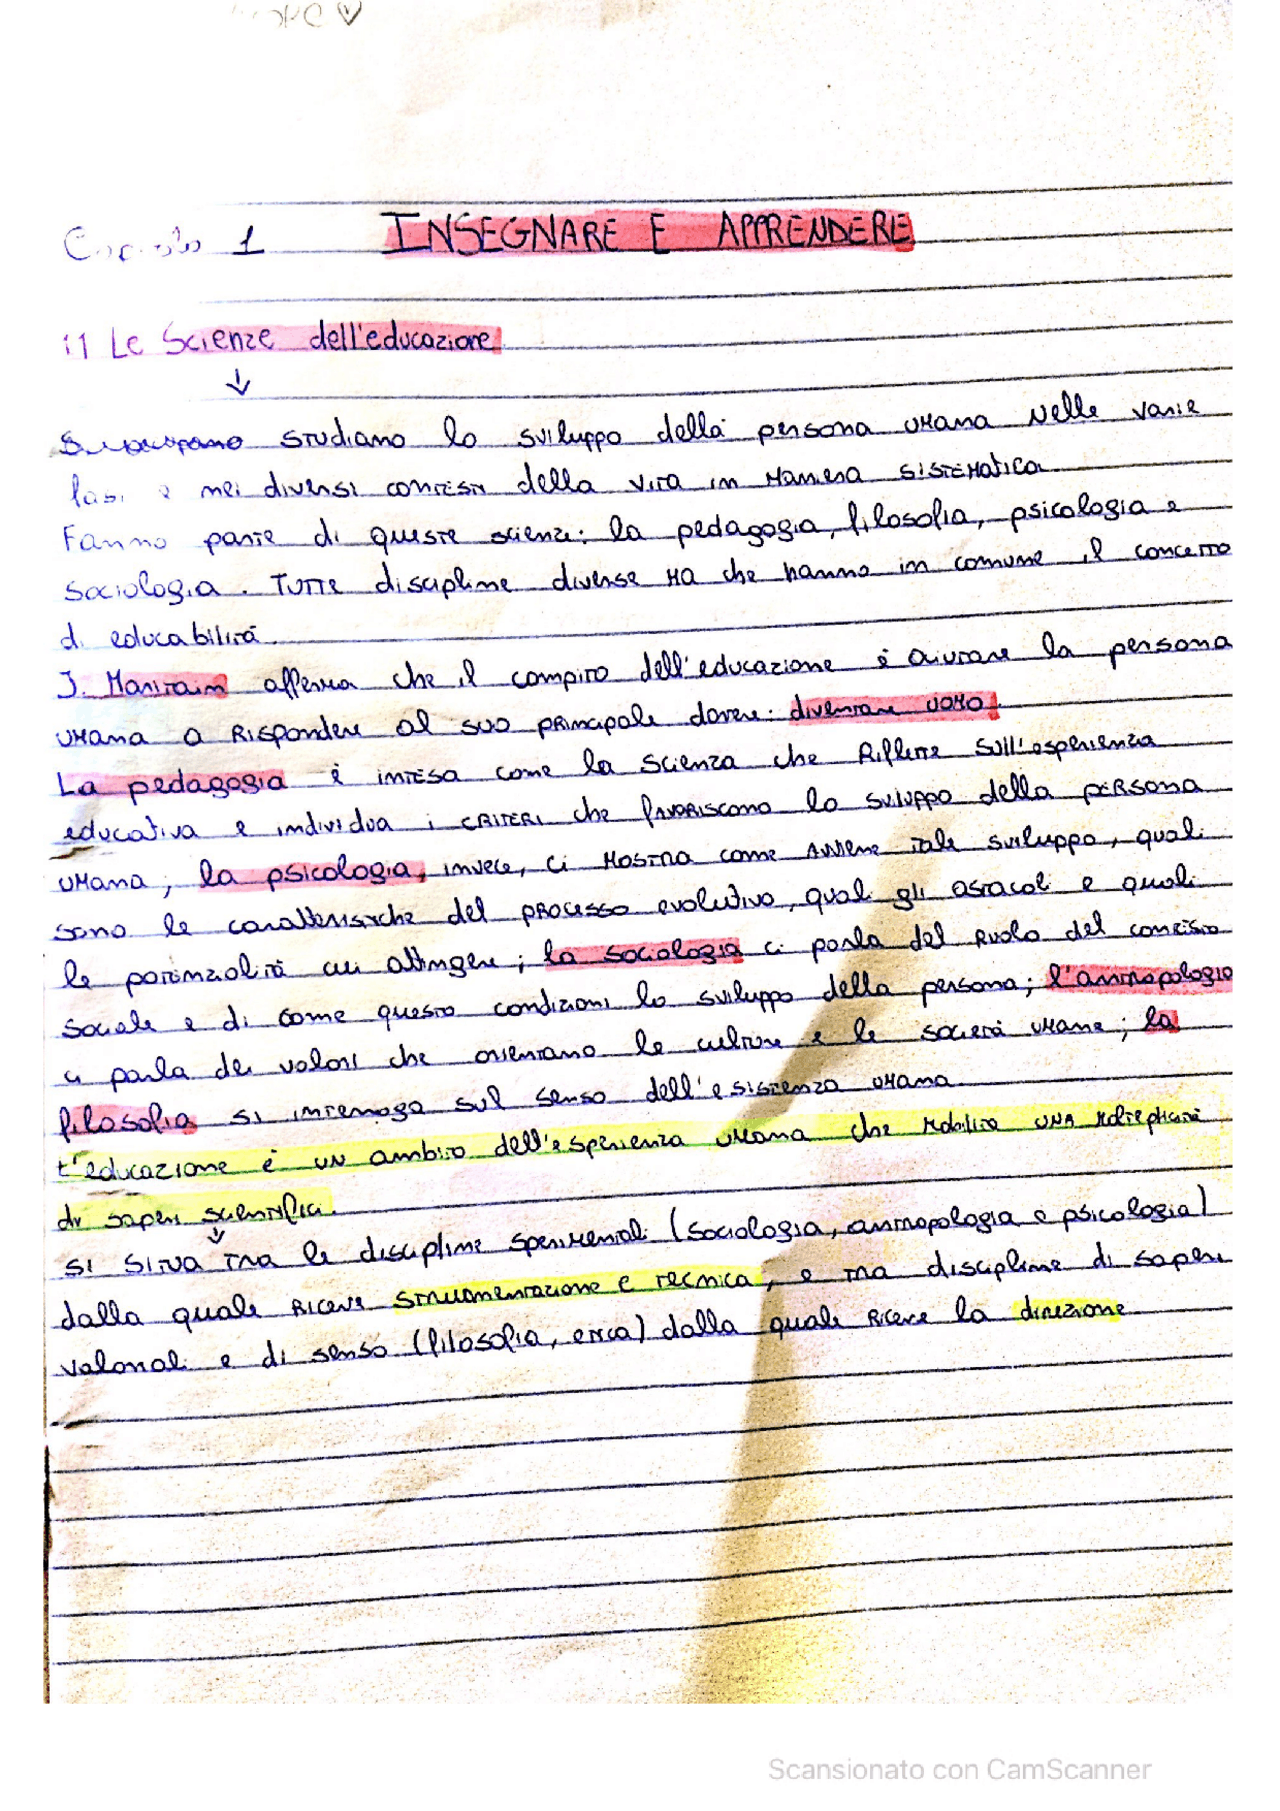 Capitolo 1 INSEGNARE E APPRENDERE
1 Le Scienze dell'educazione
↓
studiano lo sviluppo della persona umana nelle varie
fasi e nei diversi contesti della vita in maniera sistematica
Fanno parte di queste scienze: la pedagogia, filosofia, psicologia e
sociologia. Tutte discipline diverse ma che hanno in comune il concetto
di educabilità.
J. Maritain afferma che il compito dell'educazione è aiutare la persona
umana a rispondere al suo principale dovere: diventare uomo.
La pedagogia è intesa come la scienza che riflette sull'esperienza
educativa e individua i criteri che favoriscono lo sviluppo della persona
umana; la psicologia, invece, ci mostra come avviene tale sviluppo, quali
sono le caratteristiche del processo evolutivo, quali gli ostacoli e quali
le potenzialità cui attingere; la sociologia ci parla del ruolo del contesto
sociale e di come questo condizioni lo sviluppo della persona; l'antropologia
ci parla dei valori che orientano le culture e le società umane; la
filosofia si interroga sul senso dell'esistenza umana
L'educazione è un ambito dell'esperienza umana che mobilita una molteplicità
di saperi scientifici.
↓
si situa tra le discipline sperimentali (sociologia, antropologia e psicologia)
dalla quale riceve strumentazione e tecnica, e tra discipline di sapere
valoriali e di senso (filosofia, etica) dalla quale riceve la direzione
Scansionato con CamScanner